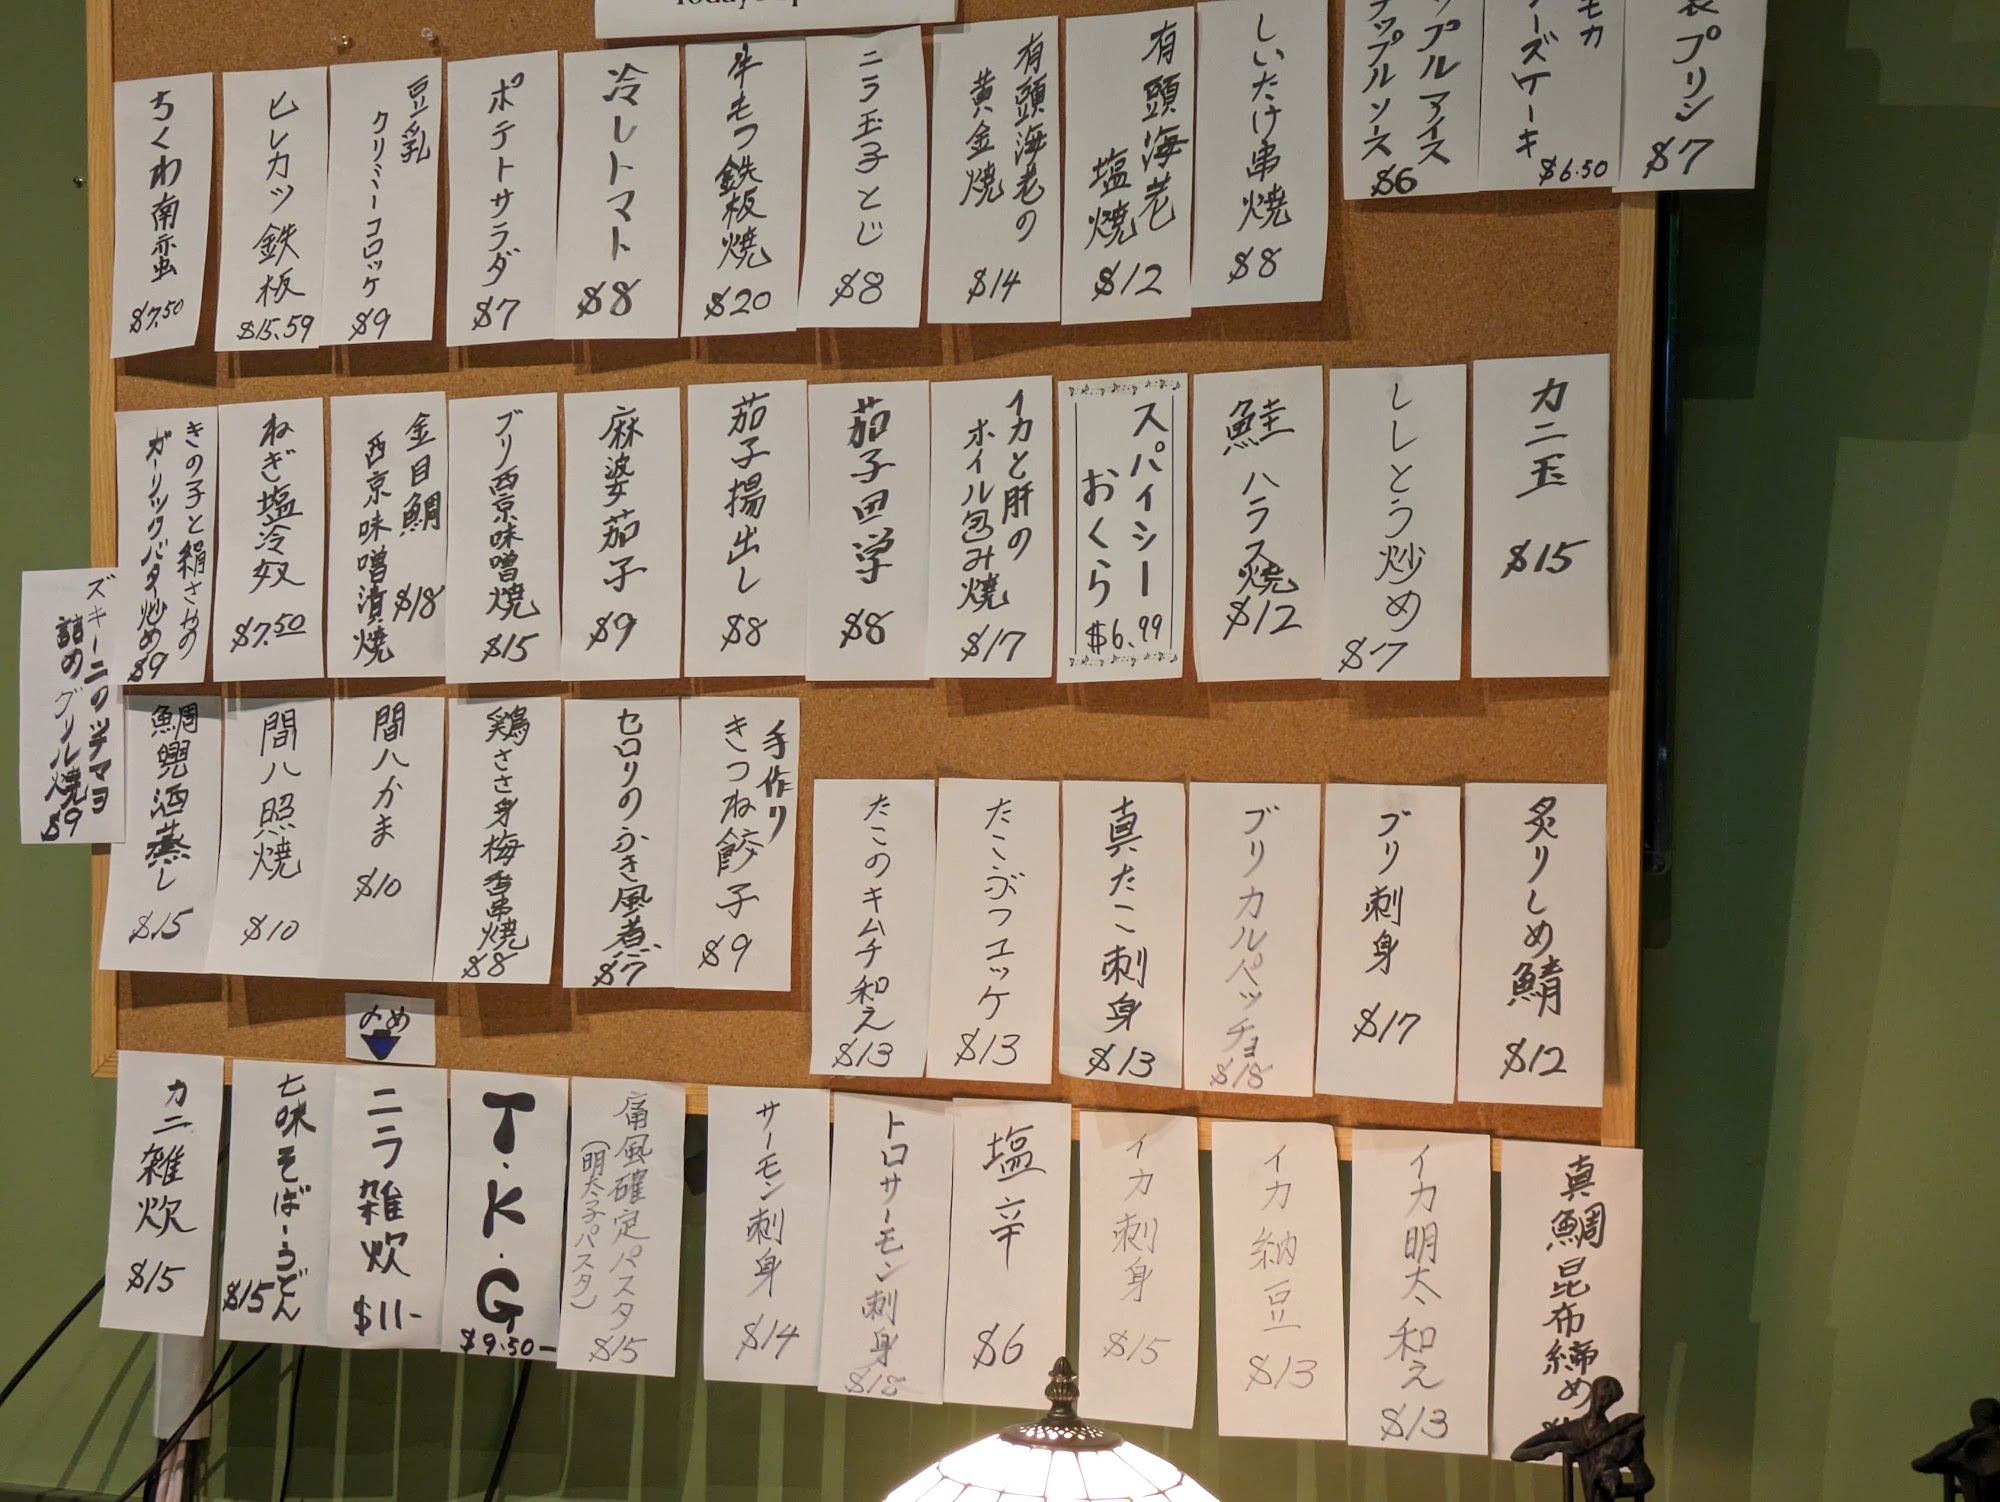 ちくわ南蛮
$7.50
ヒレカツ鉄板
$15.59
豆乳
クリーミーコロッケ
$9
ポテトサラダ
$7
冷しトマト
$8
牛もつ鉄板焼
$20
ニラ玉子とじ
$8
有頭海老の
黄金焼
$14
有頭海老
塩焼
$12
しいたけ串焼
$8
ップルアイス
ナップルソース
$6
モカ
ーズケーキ
$6.50
製プリン
$7
きの子と絹さやの
ガーリックバター炒め
$9
ねぎ塩冷奴
$7.50
金目鯛
西京味噌漬焼
$18
ブリ西京味噌焼
$15
麻婆茄子
$9
茄子揚出し
$8
茄子田学
$8
イカと肝の
ホイル包み焼
$17
スパイシー
おくら
$6.99
鮭ハラス焼
$12
ししとう炒め
$7
カニ玉
$15
ズッキーニのツナマヨ
詰のグリル焼
$9
鯛兜酒蒸し
$15
間八照焼
$10
間八かま
$10
鶏ささ身梅香串焼
$8
セロリのふき風煮
$7
手作り
きつね餃子
$9
たこのキムチ和え
$13
たこぶつユッケ
$13
真たこ刺身
$13
ブリカルパッチョ
$18
ブリ刺身
$17
炙りしめ鯖
$12
〆め
カニ雑炊
$15
七味そば・うどん
$15
ニラ雑炊
$11-
T.K.G
$9.50-
痛風確定パスタ
(明太子パスタ)
$15
サーモン刺身
$14
トロサーモン刺身
$18
塩辛
$6
イカ刺身
$15
イカ納豆
$13
イカ明太和え
$13
真鯛昆布締め